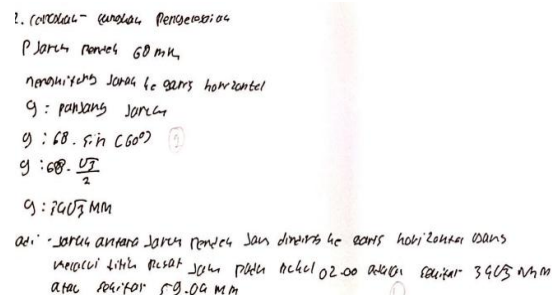 2. Langkah - Langkah Pengerjaan
P Jarum Pendek 68 mm
menghitung Jarak ke garis horizontal
y : panjang Jarum
y : 68 . sin (60°)
y : 68 . √3/2
y : 34√3 MM
adi - Jarak antara Jarum Pendek Jam dinding ke garis horizontal yang
melalui titik pusat Jam pada pukul 02.00 adalah sekitar 34√3 MM
atau sekitar 59.04 MM